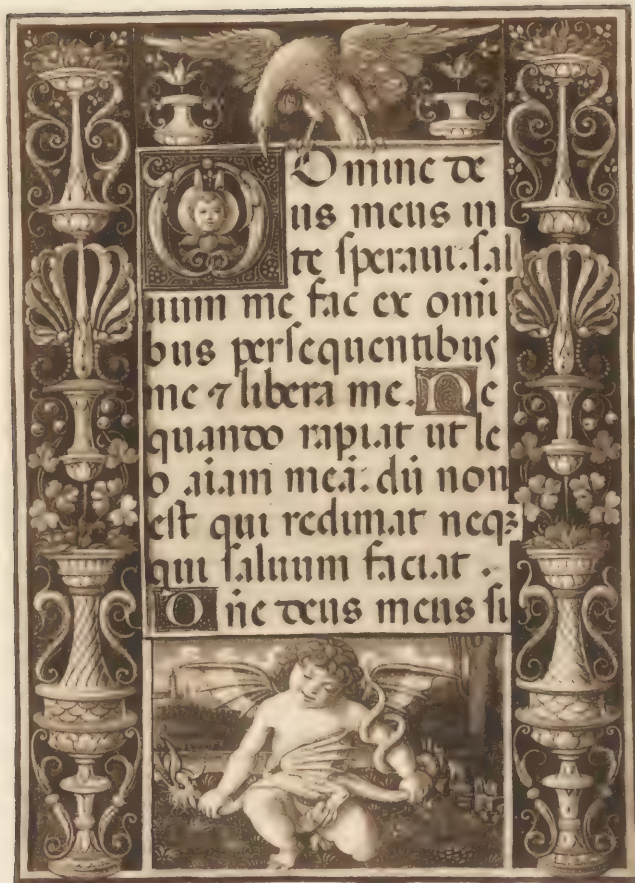 Domine de
us meus in
te speraui. sal
uum me fac ex omi
bus persequentibus
me ⁊ libera me. Ne
quando rapiat ut le
o aiam meā: dū non
est qui redimat neqꝫ
qui saluum faciat.
Dne deus meus si